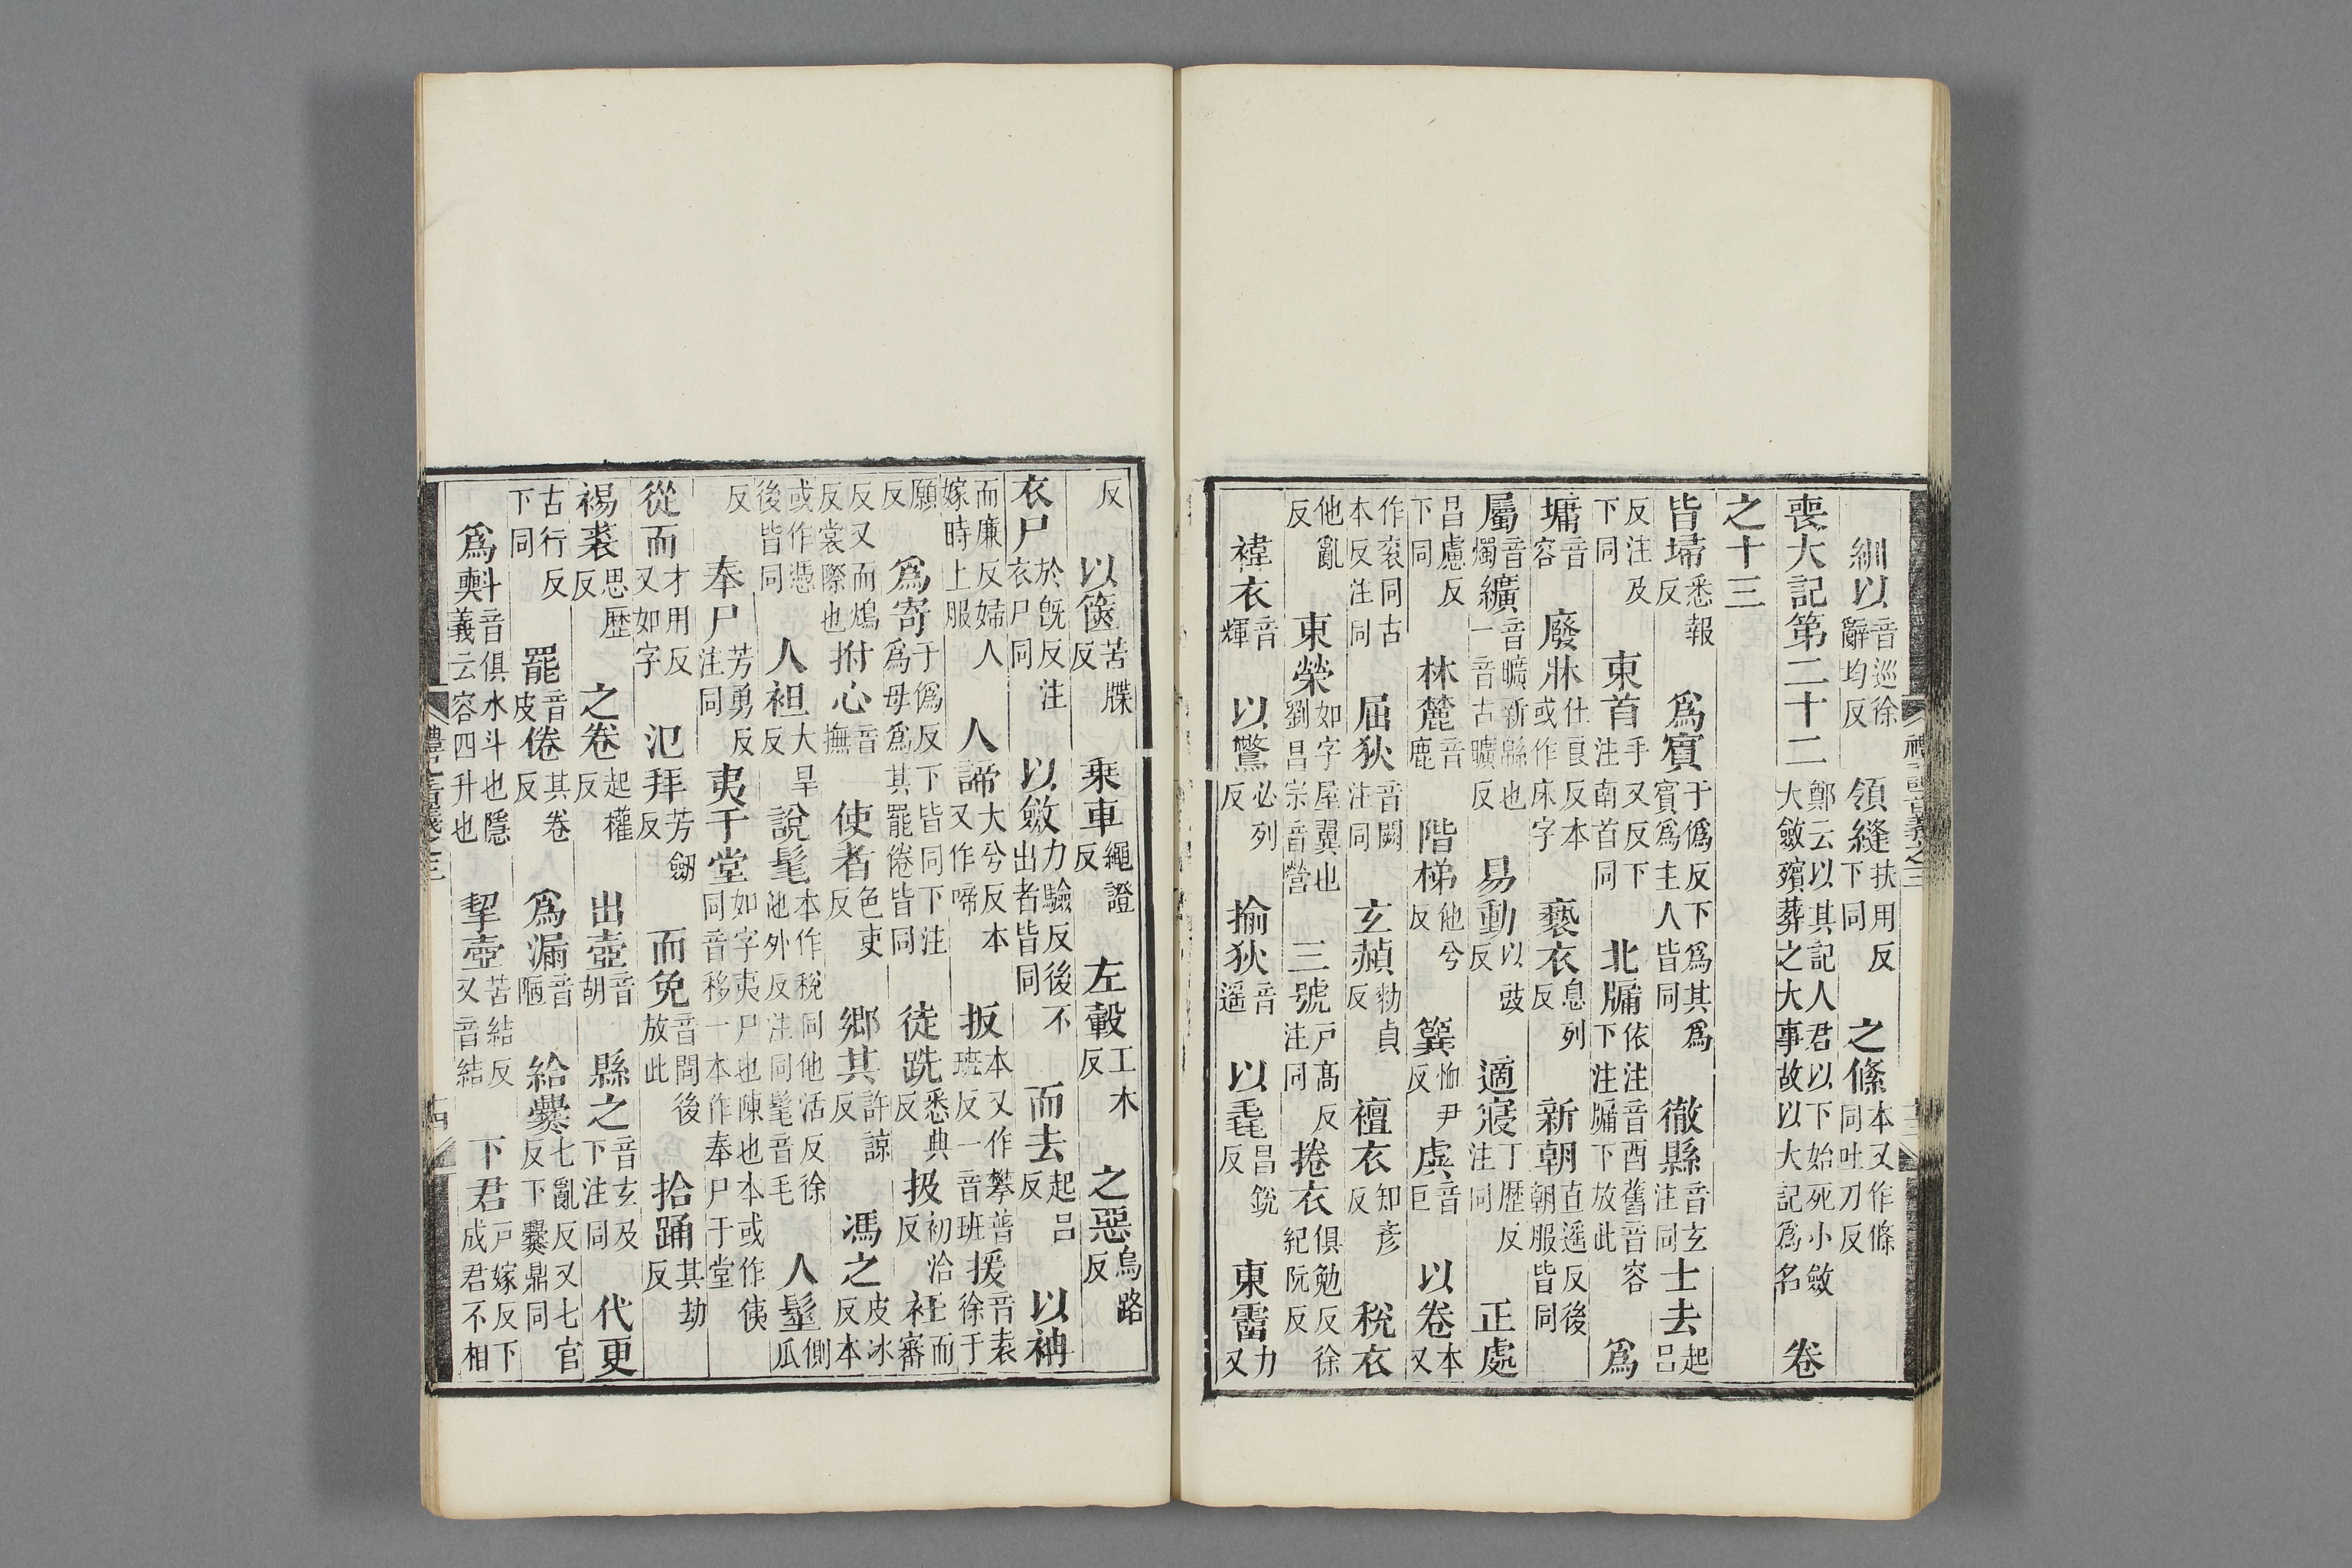 紃以音巡徐辭均反領縫扶用反下同之絛本又作條同吐刀反
喪大記第二十二鄭云以其記人君以下始死小斂大斂殯葬之大事故以大記爲名卷
之十三
皆埽悉報反爲賓于僞反下爲其爲賓爲主人皆同徹縣音玄注同士去起呂
反注及下同東首手又反下注南首同北牖依注音酉舊音容下注牖下放此爲
墉音容廢牀仕良反本或作床字褻衣息列反新朝直遥反後朝服皆同
屬音燭纊音曠新緜也一音古曠反易動以豉反適寢丁歷反注同正處
昌慮反下同林麓音鹿階梯他兮反簨恤尹反虡音巨以卷本又
作衮同古本反注同屈狄音闕注同玄赬勑貞反襢衣知彦反稅衣
他亂反東榮如字屋翼也劉昌宗音營三號戶髙反注同捲衣俱勉反徐紀阮反
褘衣音輝以鷩必列反揄狄音遥以毳昌銳反東霤力又
反以篋苦牒反乗車繩證反左轂工木反之惡烏路反
衣尸於旣反注衣尸同以斂力驗反後不出者皆同而去起呂反以袡
而廉反婦人嫁時上服人諦大兮反本又作啼扳本又作攀普班反一音班援音袁徐于
願反爲寄于僞反下爲母爲其罷倦皆同下注皆同徒跣悉典反扱初洽反衽而審
反又而鴆反裳際也拊心音撫使者色吏反鄉其許諒反馮之皮冰反本
或作憑後皆同人袒大旱反說髦本作稅同他活反徐他外反注同髦音毛人髽側瓜
反奉尸芳勇反注同夷于堂如字夷尸也陳也本或作侇同音移一本作奉尸于堂
從而才用反又如字氾拜芳劒反而免音問後放此拾踊其劫反
裼裘思歷反之卷起權反出壺音胡縣之音玄及下注同代更
古行反下同罷音皮倦其卷反爲漏音陋給爨七亂反又七官反下爨鼎同
爲㪺音俱水斗也隱義云容四升也挈壺苦結反又音結下君戶嫁反下成君不相